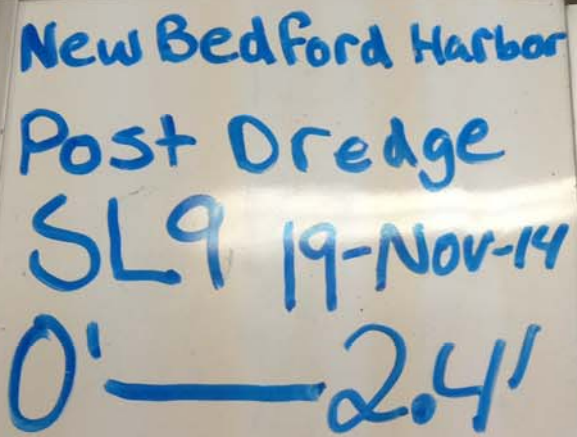 New Bedford Harbor
Post Dredge
SL9 19-Nov-14
0'—2.4'